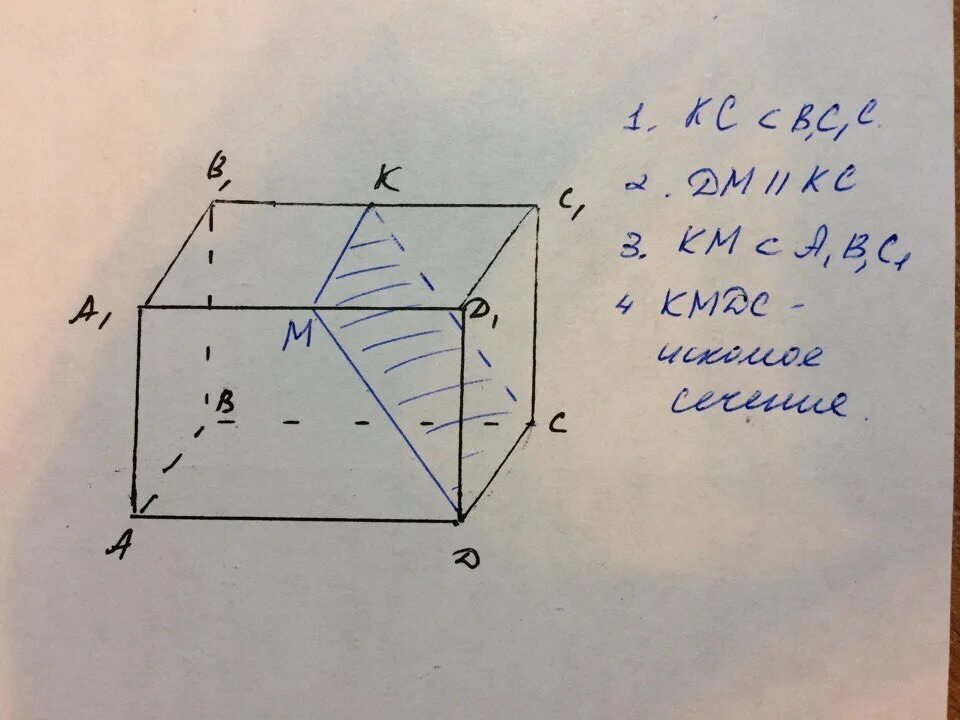 B₁
K
C₁
A₁
M
D₁
B
C
A
D
1. KC ⊂ B₁C₁C.
2. DM || KC
3. KM ⊂ A₁B₁C₁
4 KMDC -
искомое
сечение.